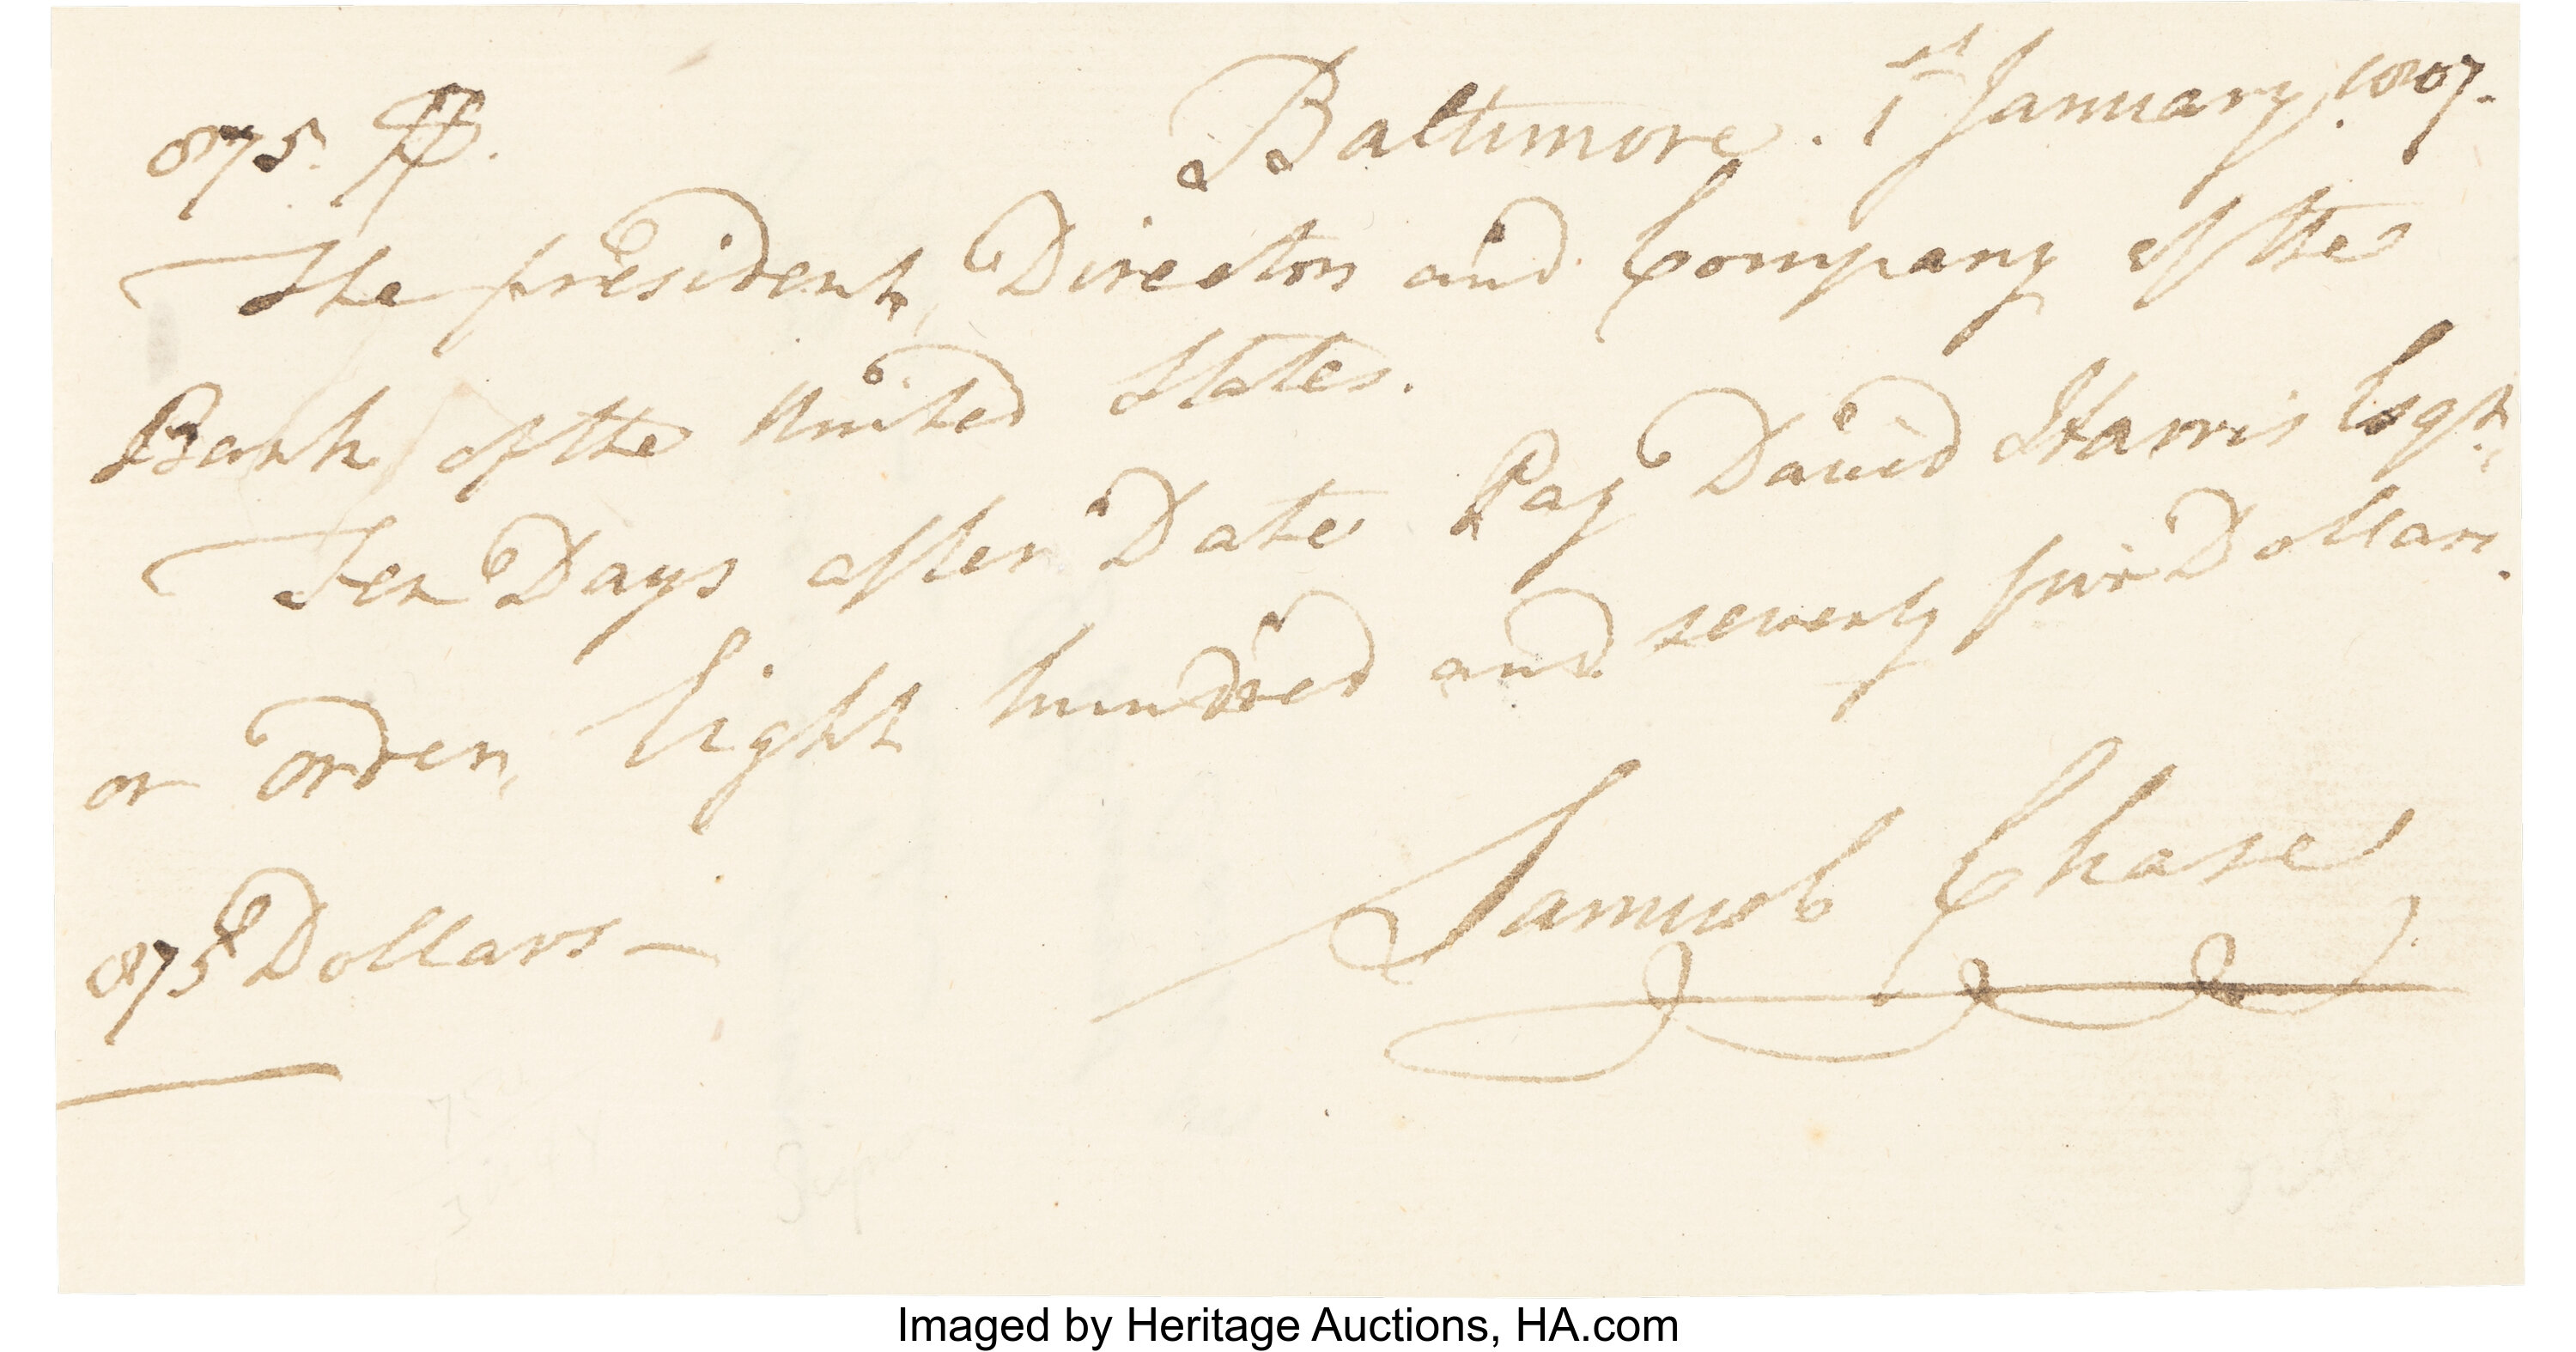 875. $. Baltimore. 1st January, 1807.
The president, Directors and Company of the
Bank of the United States.
Ten Days after Date Pay David Harris Esqr.,
or order, Eight hundred and seventy five Dollars.
Samuel Chase
875 Dollars—
Imaged by Heritage Auctions, HA.com